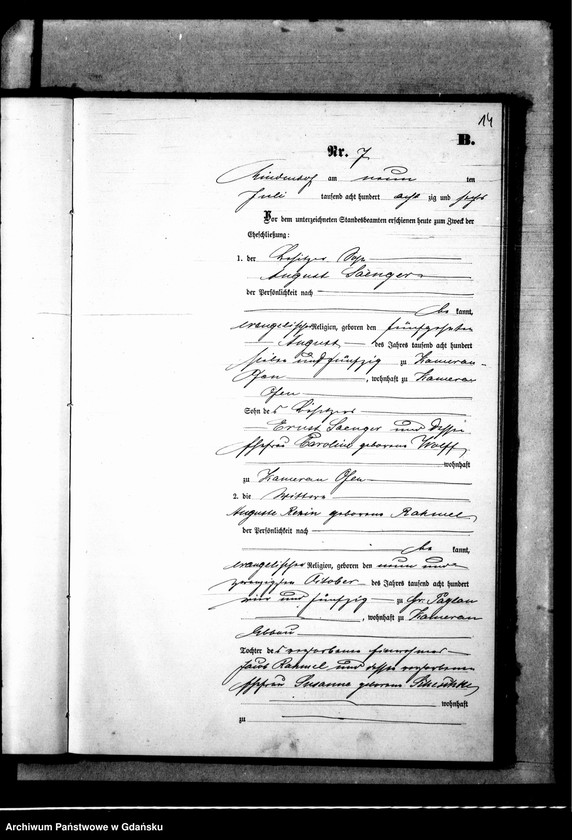 14
B.
Nr. 7
am neun ten
Juli tausend acht hundert acht zig und sechs
Vor dem unterzeichneten Standesbeamten erschienen heute zum Zweck der
Eheschließung:
1. der Besitzer Sohn
August Saenger
der Persönlichkeit nach
be kannt,
evangelischer Religion, geboren den fünfzehnten
August des Jahres tausend acht hundert
und fünfzig zu Kameran-
Ofen, wohnhaft zu Kameran
Ofen
Sohn des Besitzers
Ernst Saenger und dessen
Ehefrau Caroline geborene Wolff
wohnhaft
zu Kameran Ofen
2. die Wittwe
Auguste geborene Rahmel
der Persönlichkeit nach
be kannt,
evangelischer Religion, geboren den neun und
zwanzigsten October des Jahres tausend acht hundert
vier und fünfzig zu Gr. Paglau
, wohnhaft zu Kameran
Abbau
Tochter des verstorbenen Einwohner
Rahmel und dessen verstorbene
Ehefrau Susanna geborene
wohnhaft
zu
Archiwum Państwowe w Gdańsku